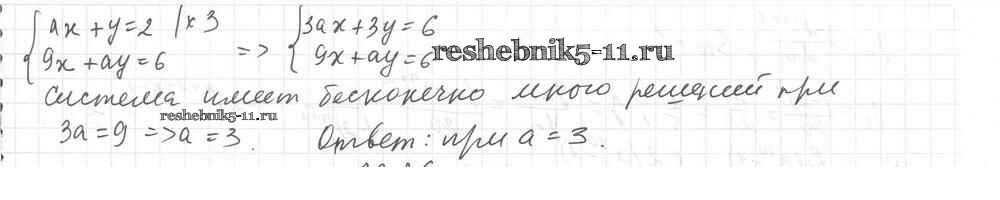 {ax + y = 2 |x 3 => {3ax + 3y = 6
{9x + ay = 6 {9x + ay = 6
reshebnik5-11.ru
Система имеет бесконечно много решений при
reshebnik5-11.ru
3a = 9 => a = 3. Ответ: при a = 3.